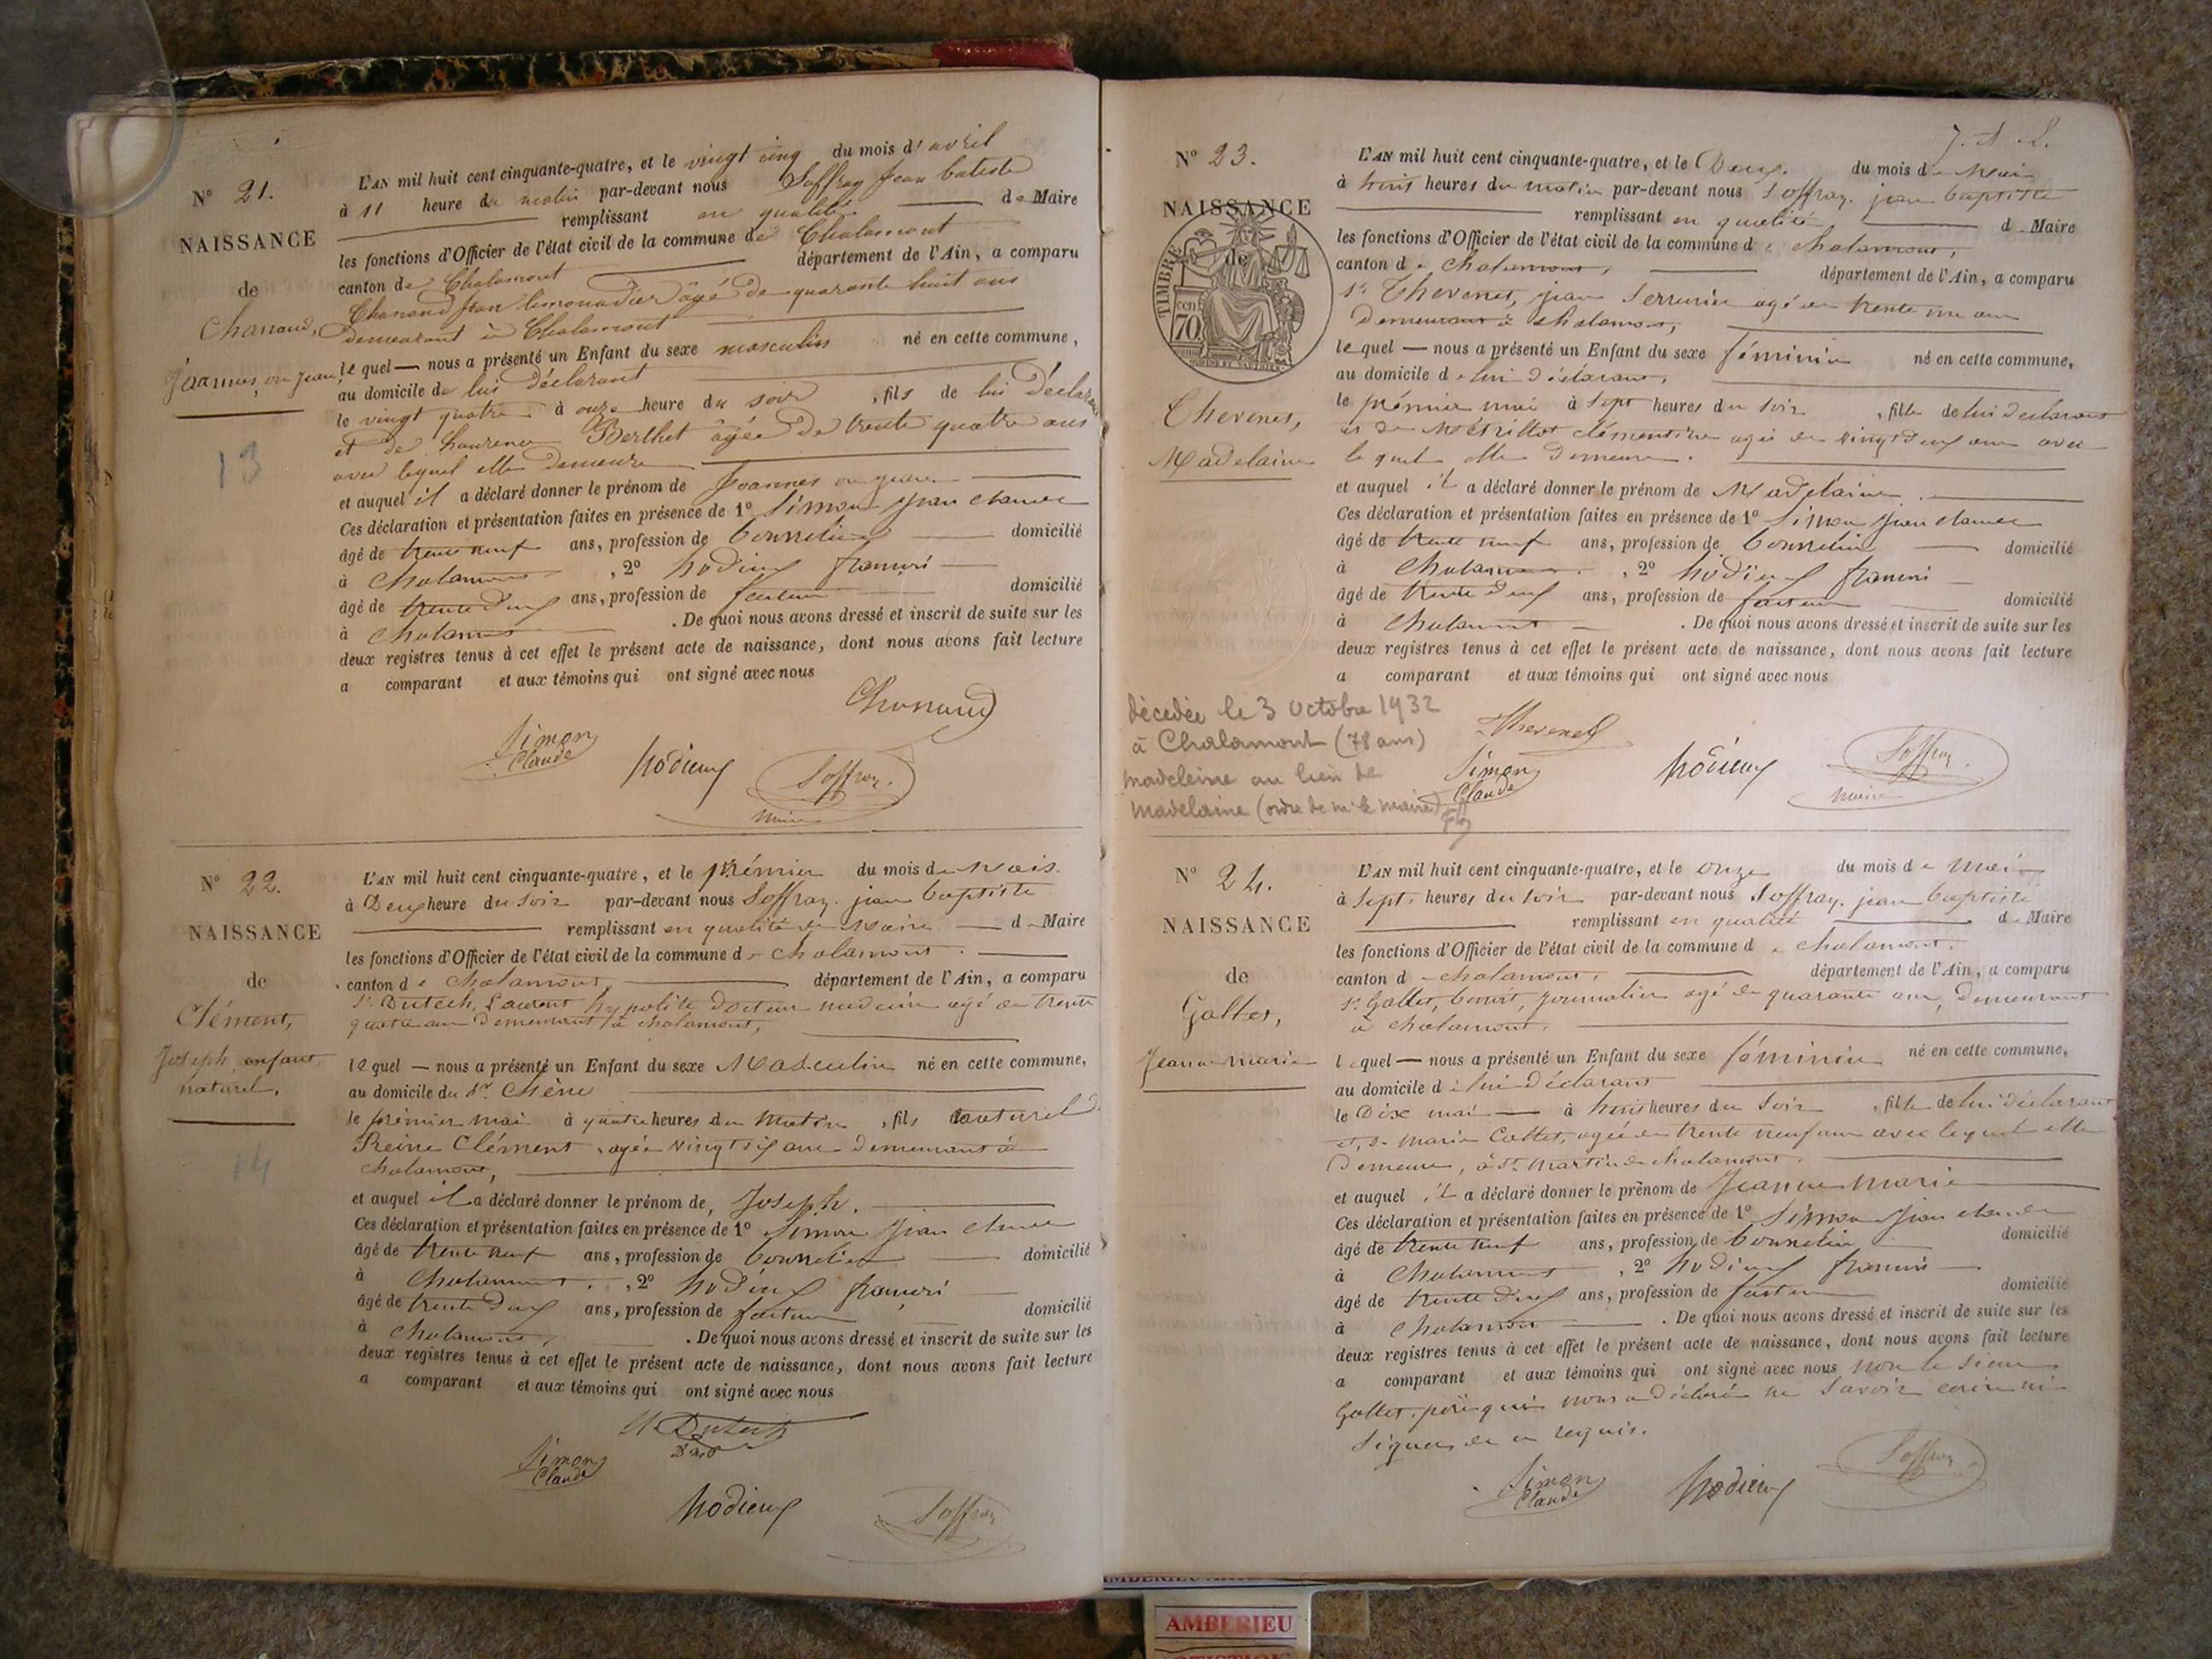 N° 21.
NAISSANCE
de
Chanand,
Joannes, ou Jean
13
L'AN mil huit cent cinquante-quatre, et le vingt cinq du mois d'avril
à 11 heure du matin par-devant nous Soffray Jean batiste
remplissant en qualité de Maire
les fonctions d'Officier de l'état civil de la commune de Chalamont
canton de Chalamont département de l'Ain, a comparu
Chanand Jean limonadier âgé de quarante huit ans
demeurant à Chalamont
lequel nous a présenté un Enfant du sexe masculin né en cette commune,
au domicile de lui déclarant
le vingt quatre à onze heure du soir, fils de lui déclarant
et de Laurence Berthet âgée de trente quatre ans
avec lequel elle demeure
et auquel il a déclaré donner le prénom de Joannes ou jean
Ces déclaration et présentation faites en présence de 1° Simon Jean claude
âgé de trente neuf ans, profession de bourrelier domicilié
à Chalamont, 2° hodieux francois
âgé de trente deux ans, profession de facteur domicilié
à Chalamont. De quoi nous avons dressé et inscrit de suite sur les
deux registres tenus à cet effet le présent acte de naissance, dont nous avons fait lecture
a comparant et aux témoins qui ont signé avec nous
Chanand
Simon
Claude
hodieux
Soffray
maire
N° 22.
NAISSANCE
de
Clément,
Joseph, enfant
naturel.
14
L'AN mil huit cent cinquante-quatre, et le prémier du mois de Mais
à Deux heure du Soir par-devant nous Soffray. jean baptiste
remplissant en qualité de Maire de Maire
les fonctions d'Officier de l'état civil de la commune de chalamont
canton de chalamont, département de l'Ain, a comparu
Sr. Dutech, Laurent hypolite docteur medecin agé de trente
quatre ans demeurant à chalamont,
lequel nous a présenté un Enfant du sexe Masculin né en cette commune,
au domicile du Sr. Chêne
le prémier mai à quatre heures du matin, fils naturel d
Reine Clément, agée vingt six ans demeurant à
chalamont,
et auquel il a déclaré donner le prénom de, Joseph.
Ces déclaration et présentation faites en présence de 1° Simon Jean claude
âgé de trente neuf ans, profession de bourrelier domicilié
à Chalamont, 2° hodieux francois
âgé de trente deux ans, profession de facteur domicilié
à Chalamont, . De quoi nous avons dressé et inscrit de suite sur les
deux registres tenus à cet effet le présent acte de naissance, dont nous avons fait lecture
a comparant et aux témoins qui ont signé avec nous
Dutech
Simon
Claude
hodieux
Soffray
N° 23.
NAISSANCE
de
TIMBRE
70
cen
Thevenet,
Madelaine
L'AN mil huit cent cinquante-quatre, et le Deux. du mois de Mai
à huit heures du matin par-devant nous Soffray. jean baptiste
remplissant en qualité de Maire
les fonctions d'Officier de l'état civil de la commune de chalamont,
canton de chalamont, département de l'Ain, a comparu
Sr. Thevenet, jean Serrurier agé de trente un ans
Demeurant à chalamont,
lequel nous a présenté un Enfant du sexe féminin né en cette commune,
au domicile de lui déclarant,
le prémier mai à Sept heures du Soir, fille de lui déclarant
et de clémentine agée de vingt deux ans avec
lequel elle demeure.
et auquel il a déclaré donner le prénom de Madelaine.
Ces déclaration et présentation faites en présence de 1° Simon Jean claude
âgé de trente neuf ans, profession de bourrelier domicilié
à Chalamont, 2° hodieux francois
âgé de trente deux ans, profession de facteur domicilié
à Chalamont. De quoi nous avons dressé et inscrit de suite sur les
deux registres tenus à cet effet le présent acte de naissance, dont nous avons fait lecture
a comparant et aux témoins qui ont signé avec nous
décedée le 3 Octobre 1932
à Chalamont (78 ans)
madeleine au lieu de
madelaine (ordre de mr le maire)
Thevenet
Simon
Claude
hodieux
Soffray
maire
N° 24.
NAISSANCE
de
Gallet,
Jeanne marie
L'AN mil huit cent cinquante-quatre, et le onze du mois de Mai
à Sept. heures du Soir par-devant nous Soffray. jean baptiste
remplissant en qualité de Maire
les fonctions d'Officier de l'état civil de la commune de chalamont.
canton de chalamont, département de l'Ain, a comparu
Sr. Gallet, benoit, journalier agé de quarante ans, Demeurant
à chalamont.
lequel nous a présenté un Enfant du sexe féminin né en cette commune,
au domicile de lui déclarant
le Dix mai à huit heures du Soir, fille de lui déclarant
et de marie Collet, agée de trente neuf ans avec lequel elle
Demeure, à St. martin de chalamont.
et auquel il a déclaré donner le prènom de Jeanne marie
Ces déclaration et présentation faites en présence de 1° Simon Jean claude
âgé de trente neuf ans, profession de bourrelier domicilié
à Chalamont, 2° hodieux francois
âgé de trente deux ans, profession de facteur domicilié
à Chalamont. De quoi nous avons dressé et inscrit de suite sur les
deux registres tenus à cet effet le présent acte de naissance, dont nous avons fait lecture
a comparant et aux témoins qui ont signé avec nous non le sieur
Gallet. père qui nous a déclaré ne Savoir ecrire ni
Signer de ce requis.
Simon
Claude
hodieux
Soffray
AMBERIEU